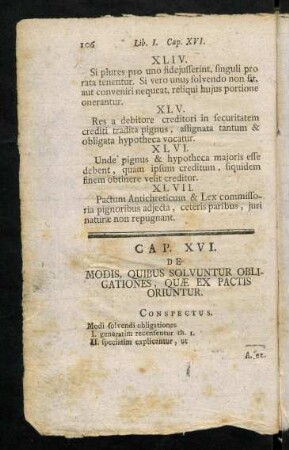 106 Lib. I. Cap. XVI.
XLIV.
Si plures pro uno fidejusserint, singuli pro
rata tenentur. Si vero unus solvendo non sit,
aut conveniri nequeat, reliqui hujus portione
onerantur.
XLV.
Res a debitore creditori in securitatem
crediti tradita pignus, assignata tantum &
obligata hypotheca vocatur.
XLVI.
Unde pignus & hypotheca majoris esse
debent, quam ipsum creditum, siquidem
finem obtinere velit creditor.
XLVII.
Pactum Antichreticum & Lex commisso-
ria pignoribus adjecta, ceteris paribus, juri
naturæ non repugnant.
CAP. XVI.
DE
MODIS, QUIBUS SOLVUNTUR OBLI-
GATIONES, QUÆ EX PACTIS
ORIUNTUR.
CONSPECTUS.
Modi solvendi obligationes
I. generatim recensentur th. 1.
II. speciatim explicantur, ut